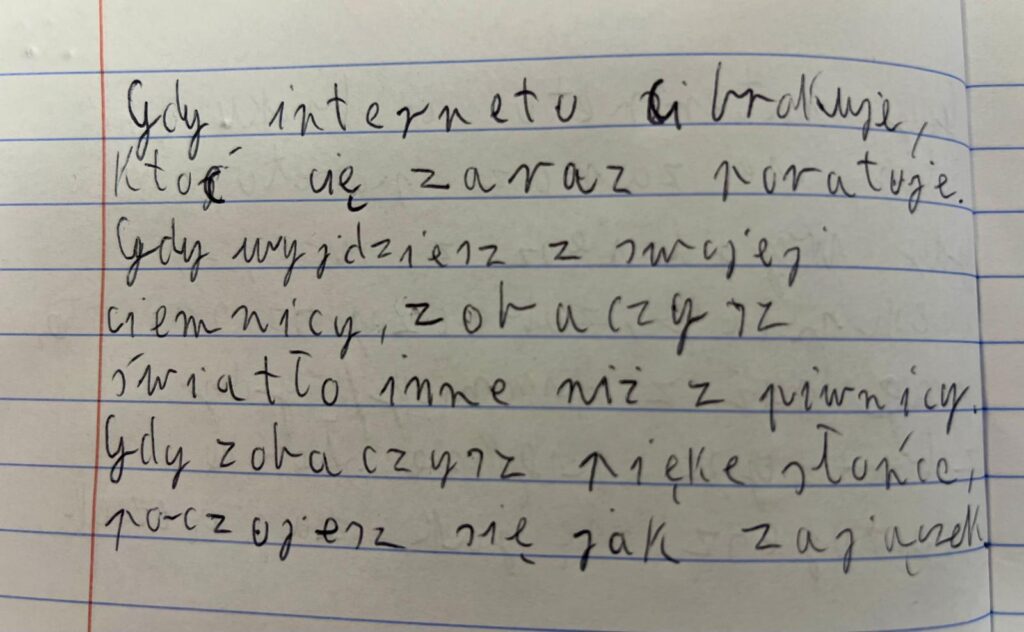 Gdy internetu ci brakuje,
ktoś cię zaraz poratuje.
Gdy wyjdziesz z swojej
ciemnicy, zobaczysz
światło inne niż z piwnicy.
Gdy zobaczysz pięke słońce,
poczujesz się jak zajączek